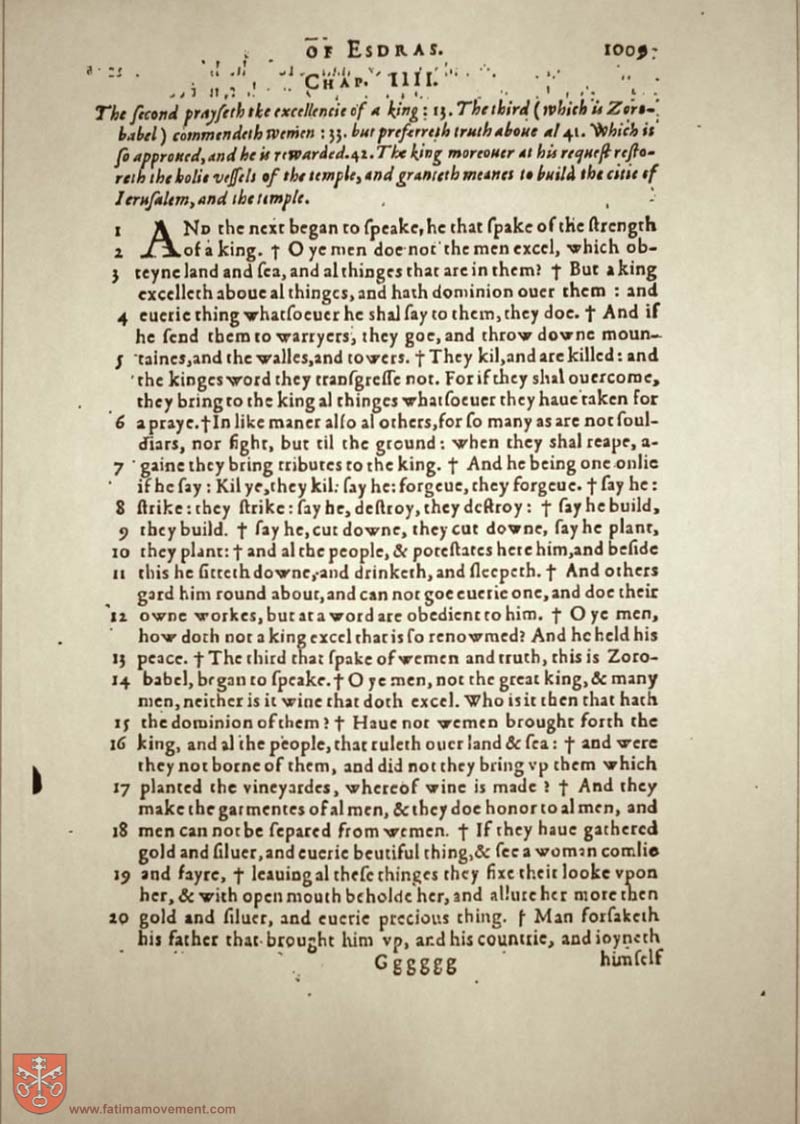 OF ESDRAS. 1009.
CHAP. IIII.
The ſecond prayſeth tke excellencie of a king: 13. The third (which is Zoro-
babel) commendeth wemen: 33. but preferreth truth aboue al 41. Which is
ſo approued, and he is rewarded. 42. The king moreouer at his requeſt reſto-
reth the holie veſſels of the temple, and granteth meanes to build the citie of
Ieruſalem, and the temple.
1 AND the next began to ſpeake, he that ſpake of the ſtrength
2 of a king. † O ye men doe not the men excel, which ob-
3 teyne land and ſea, and al thinges that are in them? † But a king
excelleth aboue al thinges, and hath dominion ouer them : and
euerie thing whatſoeuer he shal ſay to them, they doe. † And if
4 he ſend them to warryers, they goe, and throw downe moun-
5 taines, and the walles, and towers. † They kil, and are killed: and
the kinges word they tranſgreſſe not. For if they shal ouercome,
they bring to the king al thinges whatſoeuer they haue taken for
6 a praye. † In like maner alſo al others, for ſo many as are not ſoul-
diars, nor fight, but til the ground: when they shal reape, a-
7 gaine they bring tributes to the king. † And he being one onlie
if he ſay: Kil ye, they kil: ſay he: forgeue, they forgeue. † ſay he:
8 ſtrike: they ſtrike: ſay he, deſtroy, they deſtroy: † ſay he build,
9 they build. † ſay he, cut downe, they cut downe, ſay he plant,
10 they plant: † and al the people, & poteſtates here him, and beſide
11 this he ſitteth downe, and drinketh, and ſleepeth. † And others
gard him round about, and can not goe euerie one, and doe their
12 owne workes, but at a word are obedient to him. † O ye men,
how doth not a king excel that is ſo renowmed? And he held his
13 peace. † The third that ſpake of wemen and truth, this is Zoro-
14 babel, began to ſpeake. † O ye men, not the great king, & many
men, neither is it wine that doth excel. Who is it then that hath
15 the dominion of them? † Haue not wemen brought forth the
16 king, and al the people, that ruleth ouer land & ſea: † and were
they not borne of them, and did not they bring vp them which
17 planted the vineyardes, whereof wine is made? † And they
make the garmentes of al men, & they doe honor to al men, and
18 men can not be ſepared from wemen. † If they haue gathered
gold and ſiluer, and euerie beutiful thing, & ſee a woman comlie
19 and fayre, † leauing al theſe thinges they fixe their looke vpon
her, & with open mouth beholde her, and allure her more then
20 gold and ſiluer, and euerie precious thing. † Man forſaketh
his father that brought him vp, and his countrie, and ioyneth
Gggggg himſelf
www.fatimamovement.com